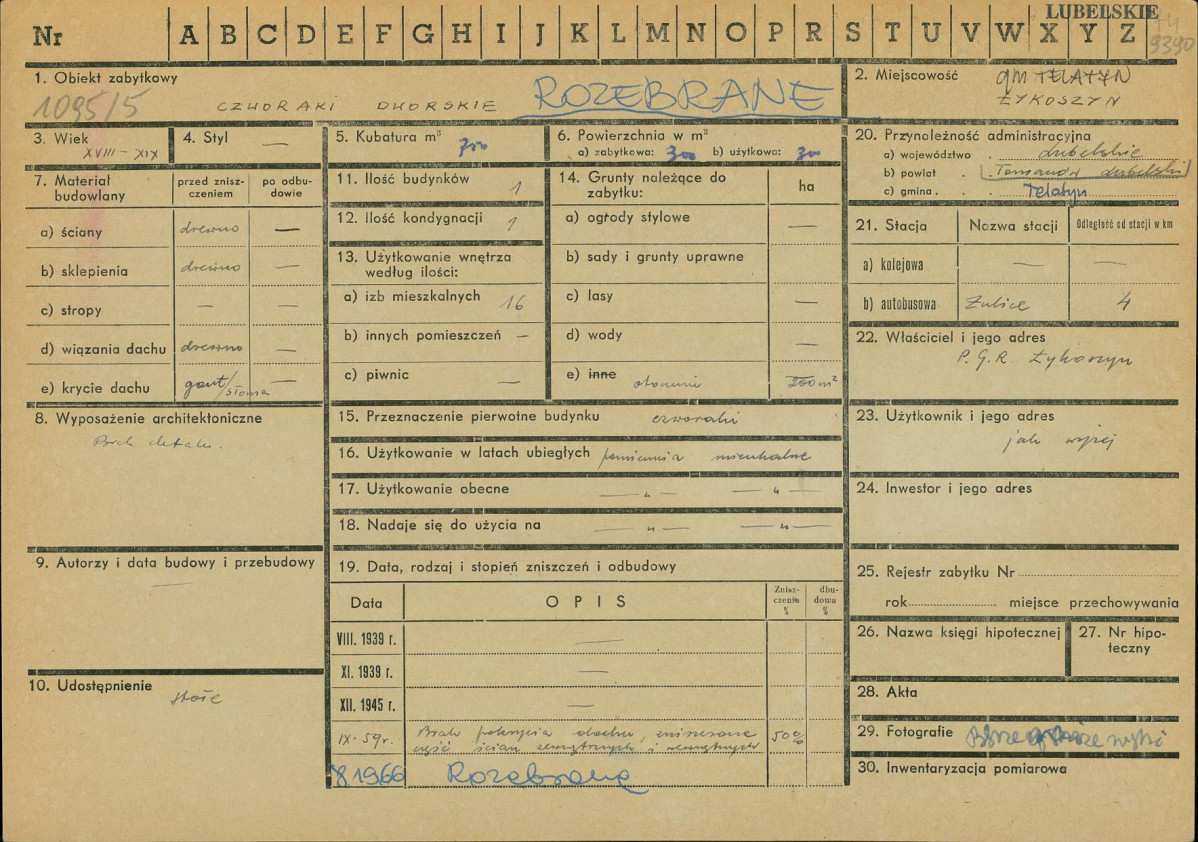 LUBELSKIE
Nr A B C D E F G H I J K L M N O P R S T U V W X Y Z
9390
1. Obiekt zabytkowy
1095/5 CZWORAKI DWORSKIE ROZEBRANE
2. Miejscowość gm TELATYN
ŻYKOSZYN
3. Wiek
XVIII - XIX
4. Styl —
5. Kubatura m³ 700
6. Powierzchnia w m²
a) zabytkowa: 300 b) użytkowa: 300
7. Materiał budowlany
przed zniszczeniem
po odbudowie
a) ściany drewno —
b) sklepienia drewno —
c) stropy — —
d) wiązania dachu drewno —
e) krycie dachu gont/słoma —
8. Wyposażenie architektoniczne
Brak detalu.
9. Autorzy i data budowy i przebudowy
—
10. Udostępnienie stałe
11. Ilość budynków 1
12. Ilość kondygnacji 1
13. Użytkowanie wnętrza
według ilości:
a) izb mieszkalnych 16
b) innych pomieszczeń —
c) piwnic —
14. Grunty należące do
zabytku: ha
a) ogrody stylowe —
b) sady i grunty uprawne
c) lasy —
d) wody —
e) inne 200 m²
15. Przeznaczenie pierwotne budynku czworaki
16. Użytkowanie w latach ubiegłych mieszkalne
17. Użytkowanie obecne — „ — — „ —
18. Nadaje się do użycia na — „ — — „ —
19. Data, rodzaj i stopień zniszczeń i odbudowy
Data OPIS Zniszczenia % dbudowa %
VIII. 1939 r. —
XI. 1939 r. —
XII. 1945 r. —
IX. 59 r. Brak pokrycia dachu, zniszczona 50%
część ścian zewnętrznych i wewnętrznych
1966 Rozebrane
20. Przynależność administracyjna
a) województwo . lubelskie
b) powiat . . Tomaszów Lubelski
c) gmina . . Telatyn
21. Stacja Nazwa stacji Odległość od stacji w km
a) kolejowa — —
b) autobusowa Żulice 4
22. Właściciel i jego adres
P.G.R. Żykoszyn
23. Użytkownik i jego adres
jak wyżej
24. Inwestor i jego adres
25. Rejestr zabytku Nr
rok miejsce przechowywania
26. Nazwa księgi hipotecznej
27. Nr hipoteczny
28. Akta
29. Fotografie
30. Inwentaryzacja pomiarowa